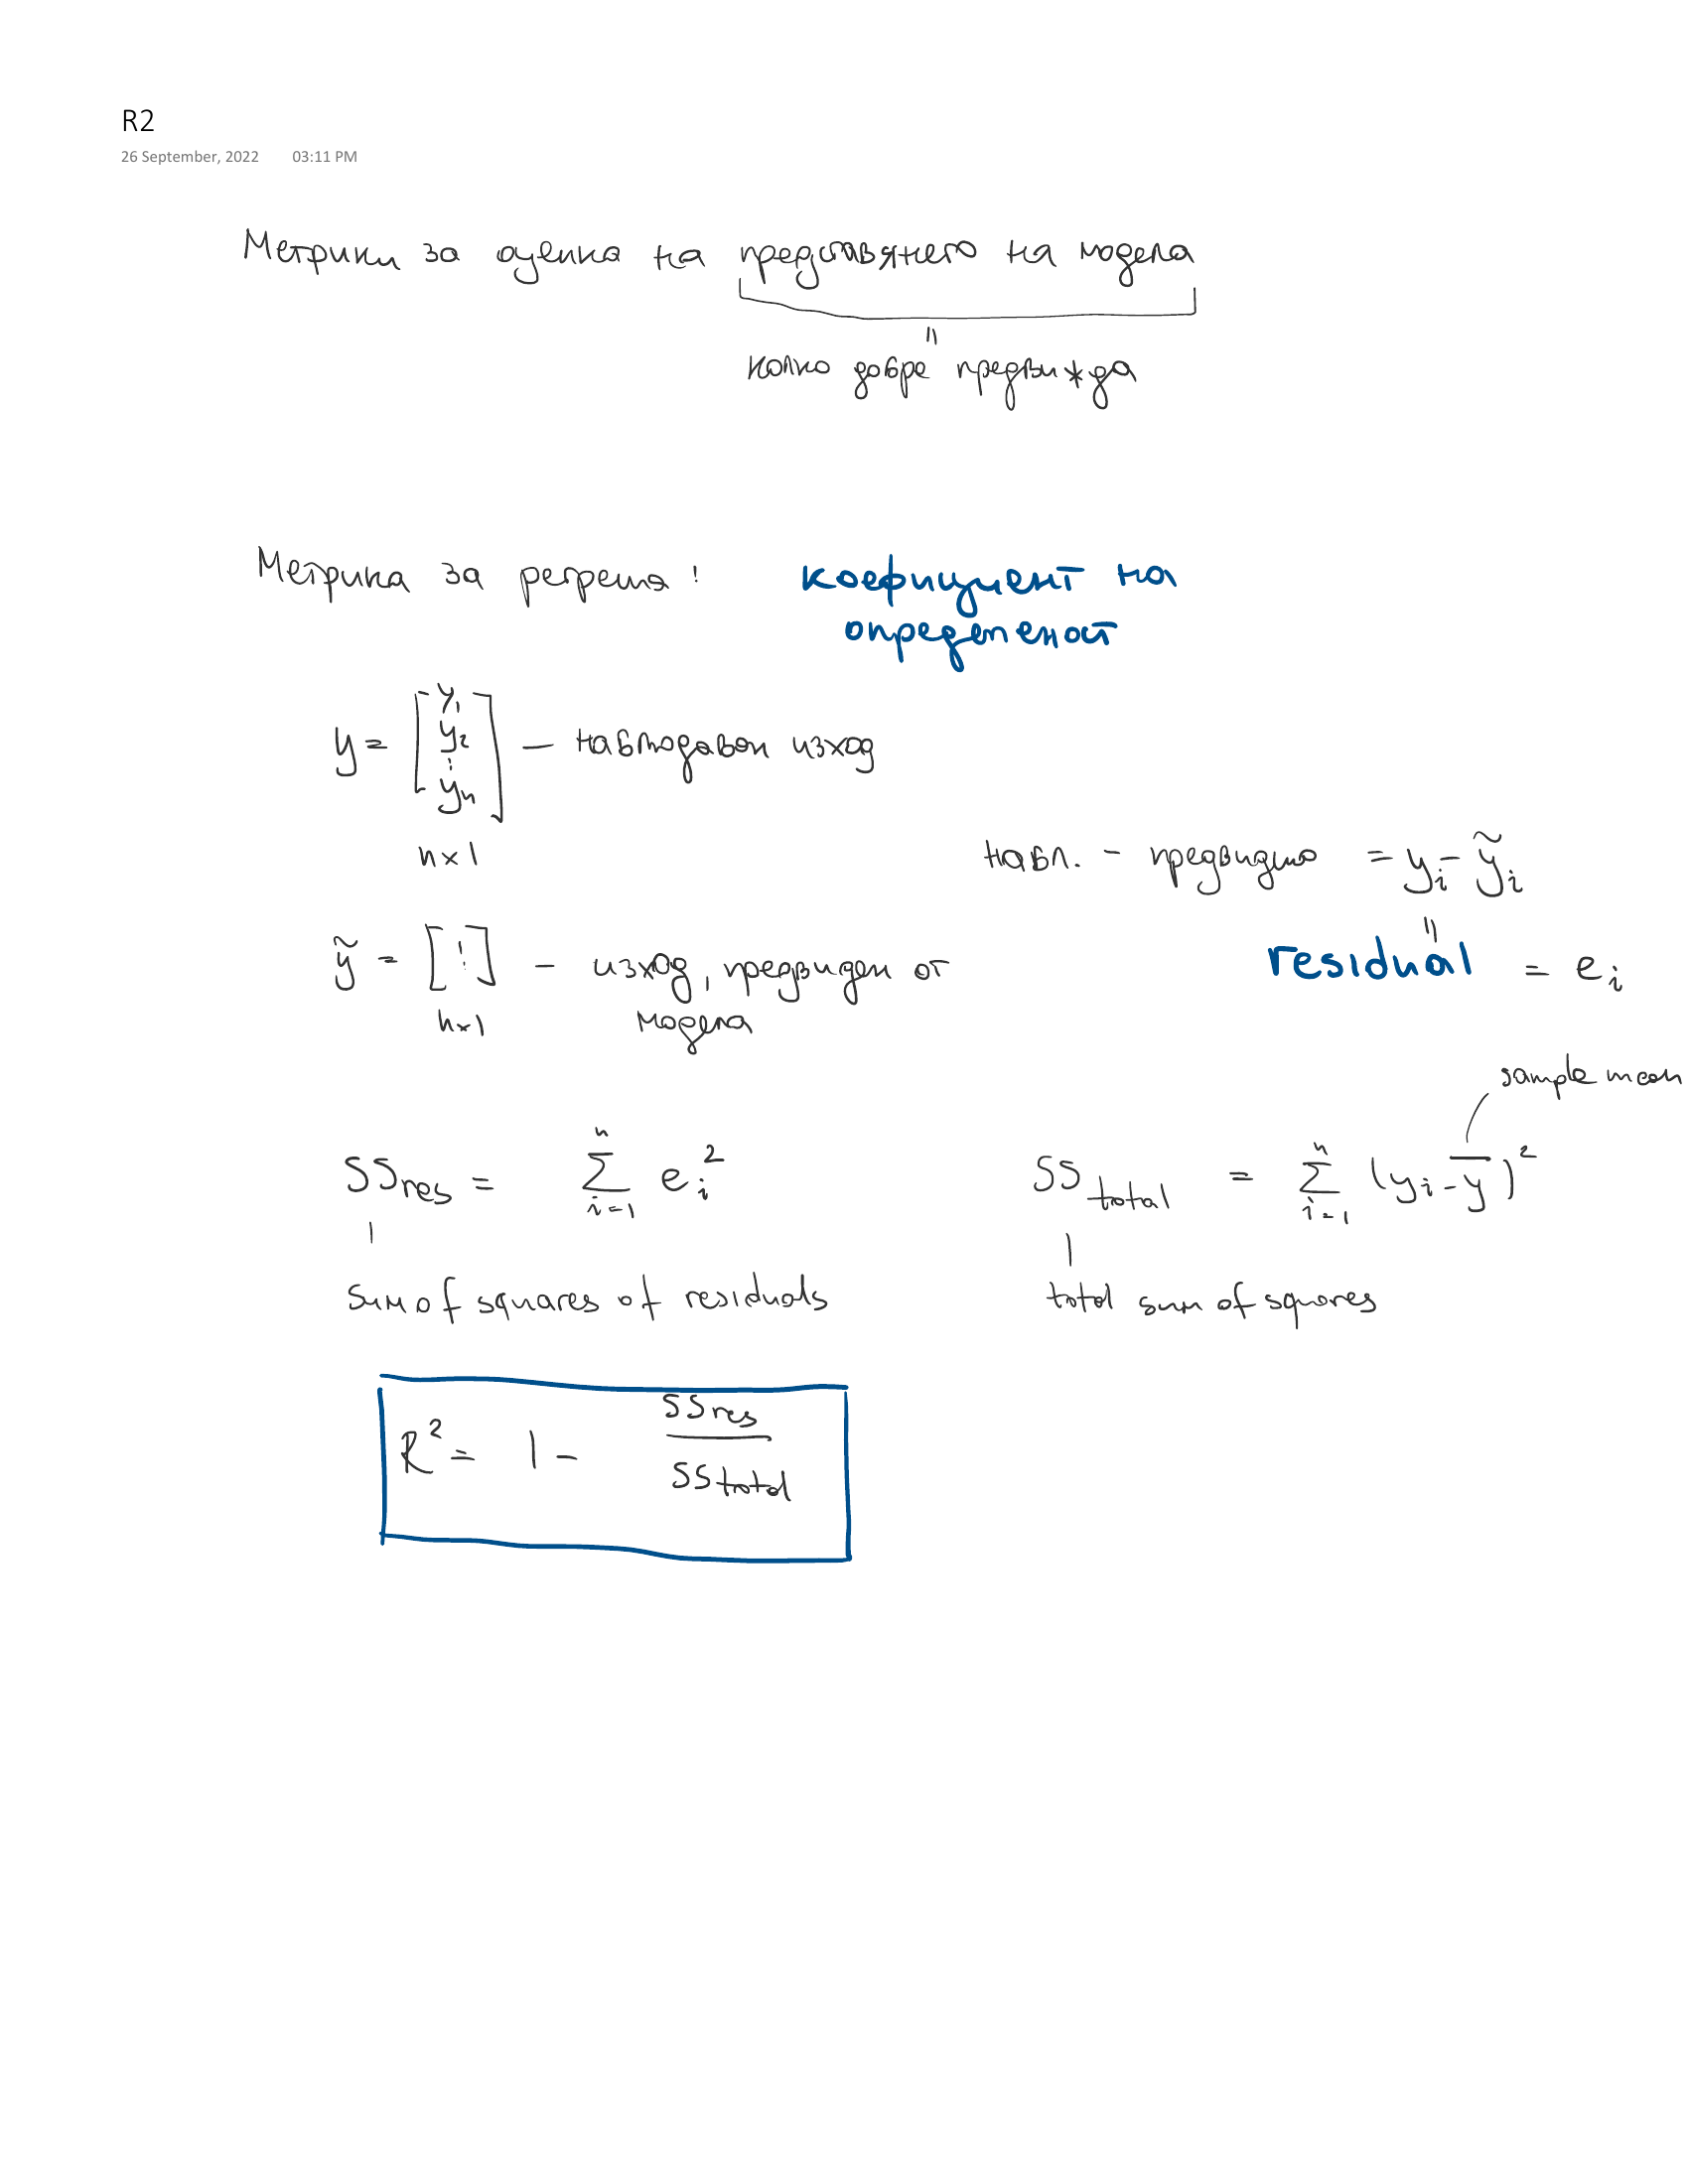 R2
26 September, 2022 03:11 PM
Метрики за оценка на представянето на модела
=
колко добре предвижда
Метрика за регресия: коефициент на
определеност
y = [y₁ y₂ ⋮ yₙ] — наблюдаван изход
n×1
набл. - предвидено = yᵢ - ỹᵢ
=
ỹ = [⋮] - изход, предвиден от
модела
n×1
residual = eᵢ
sample mean
SS_res = ∑_{i=1}^{n} eᵢ²
SS_total = ∑_{i=1}^{n} (yᵢ - ȳ)²
sum of squares of residuals
total sum of squares
R² = 1 - SS_res / SS_total